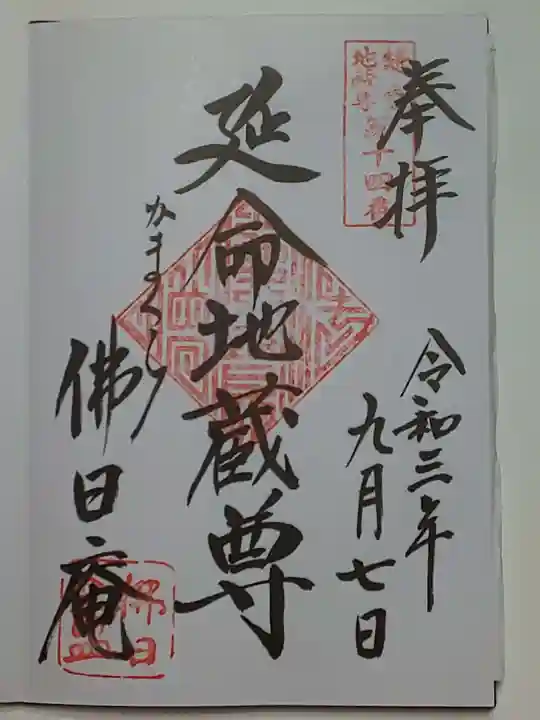 奉拝
鎌倉
地蔵尊第十四番
令和三年
九月七日
延命地蔵尊
かまくら
佛日庵
佛日